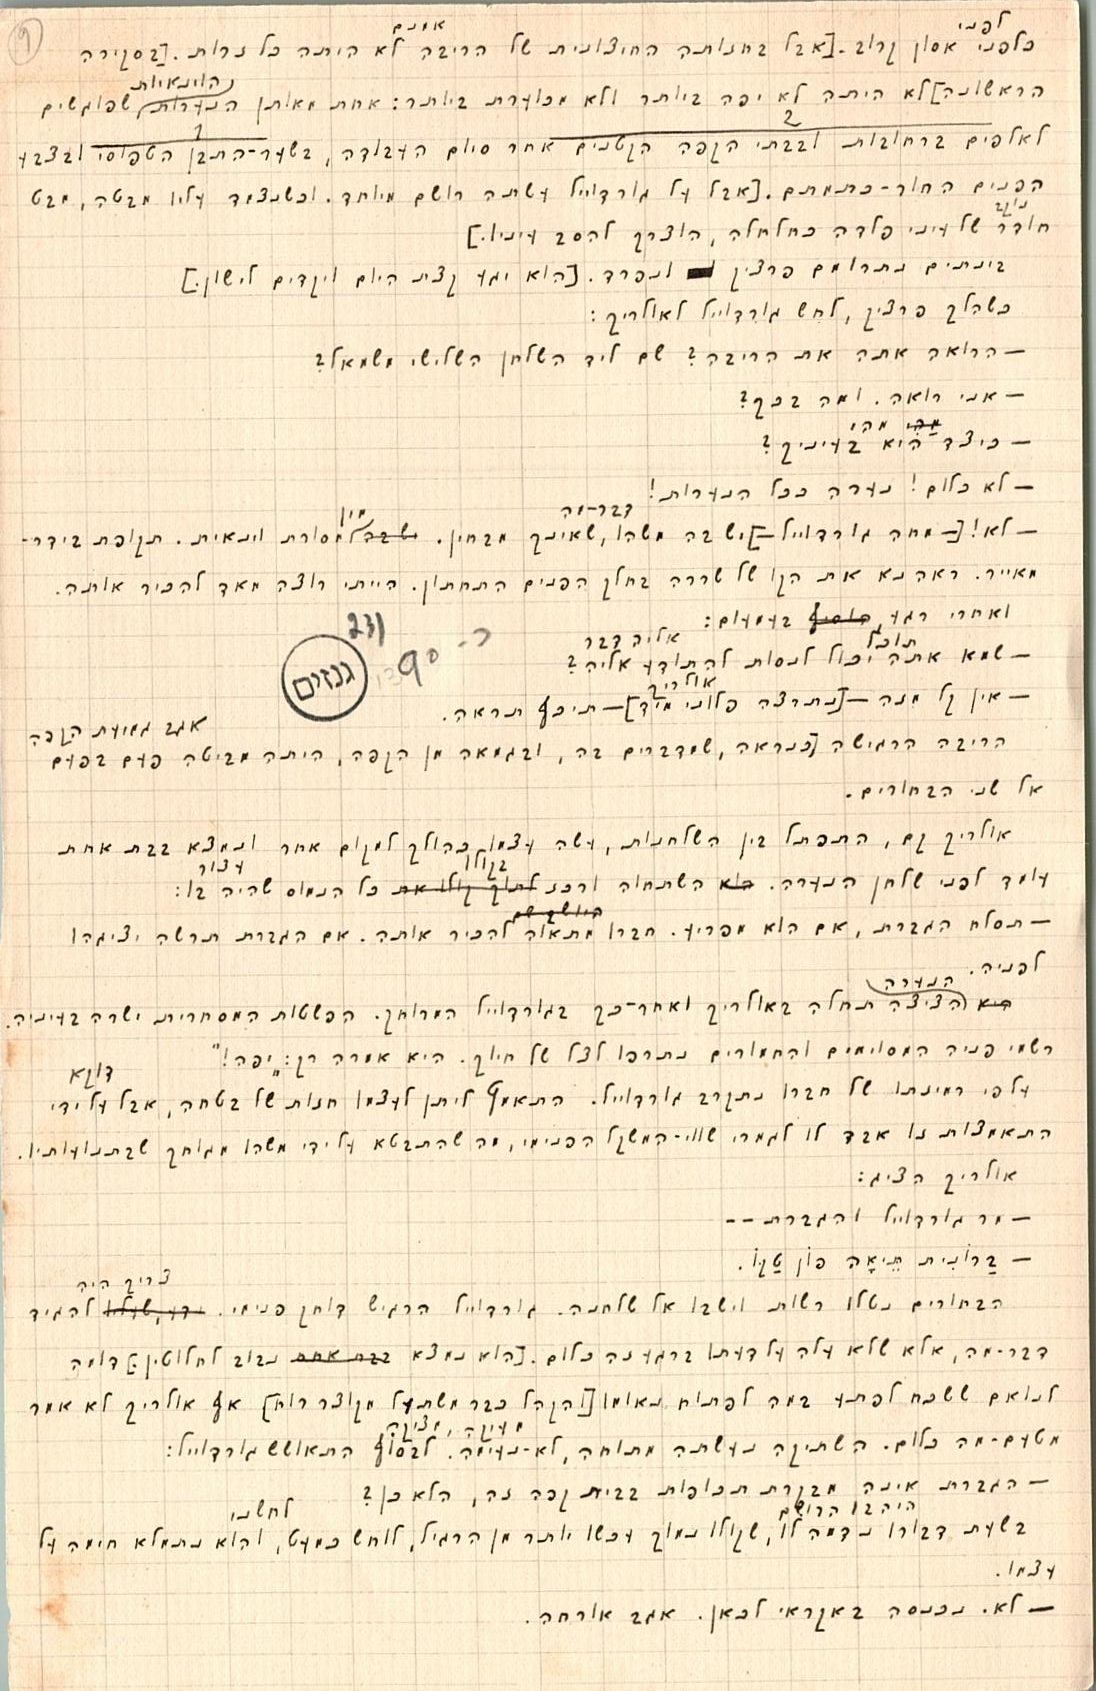 9
לפני
אמנם
כלפני אסון קרוב. [אבל בחנותה החיצונית של הריבה לא היתה כל נרות. [בסקירה
הוינאיות
הראשונה] לא היתה לא יפה ביותר ולא מכוערת ביותר: אחת מאותן הנערות שפוגשים
1 2
לאלפים ברחובות ובבתי הקפה הקטנים אחר סיום העבודה, בשער-התבן הטפוסי ובצבע
הפנים החור-כתמתם. [אבל על גורדווייל עשתה רושם מיוחד. וכשנצמד עליו מבטה, מבט
נוקב
חודר של עיני פלדה כחלחלה, הוצרך להסב עיניו.]
בינתים נתרומם פרציק ונפרד. [הוא יגע קצת היום ויקדים לישון.]
כשהלך פרציק, לחש גורדווייל לאולריך:
– הרואה אתה את הריבה? שם ליד השלחן השלישי משמאל?
– אני רואה. ומה בכך?
מהי מהי
– כיצד היא בעיניך?
– לא כלום! נערה ככל הנערות!
דבר-מה
מין
– לא! [– מחה גורדווייל –] יש בה משהו, שאינך מבחין. שבה למסורת וינאית. תקופת בידר-
מאייר. ראה נא את הקו של שררה בחלק הפנים התחתון. הייתי רוצה מאד להכיר אותה.
ואחרי רגע, הוסיף בעמעום:
תוכל
אליה דבר
– שמא אתה יכול לנסות להתודע אליה?
231
כ- 90
גנזים
אולריך
– אין קל מנה – [נתרצה פלוני מיד] – תיכף תראה.
אגב גמיעת הקפה
הריבה הרגישה [כנראה, שמדברים בה, ובגמאה מן הקפה, היתה מביטה פעם בפעם
אל שני הבחורים.
אולריך קם, התפתל בין השלחנות, עשה עצמו כהולך למקום אחר ונמצא בבת אחת
בקולו
עצור
עומד לפני שלחן הנערה. הוא השתחוה ורכז לתוך קולו את כל הנמוס שהיה בו:
היושב שם
– תסלח הגברת, אם הוא מפריע. חברו מתאוה להכיר אותה. אם הגברת תרשה יציגהו
לפניה.
הנערה
היא הציצה תחלה באולריך ואחר-כך בגורדווייל המרוחק. הפשטות המסחרית ישרה בעיניה.
רשמי פניה המסוימים והחמורים נתרפו לצל של חיוך. היא אמרה רק: „יפה!"
דוקא
על פי רמיזתו של חברו נתקרב גורדווייל. התאמץ ליתן לעצמו חנות של בטחה, אבל על ידי
התאמצות זו אבד לו לגמרי שווי-המשקל הפנימי, מה שהתבטא על ידי משהו מגוחך שבתנועותיו.
אולריך הציג:
– מר גורדווייל והגברת --
– בַּרוֹנִית תֵּיאָה פוֹן טַקוֹ.
צריך היה
הבחורים נטלו רשות וישבו אל שלחנה. גורדווייל הרגיש דוחק פנימי. ידע, שעליו להגיד
דבר-מה, אלא שלא עלה על דעתו ברגע זה כלום. [הוא נמצא בבת אחת נבוב לחלוטין.] דומה
לנואם ששכח לפתע במה לפתוח נאומו [והקהל כבר משתעל מקוצר רוח] אף אולריך לא אמר
מעיקה, מציקה
מטעם-מה כלום. השתיקה נעשתה מתוחה, לא-נעימה. לבסוף התאושש גורדווייל:
– הגברת אינה מבקרת תכופות בבית קפה זה, הלא כן?
היה בו הרושם
לחשני
בשעת דבורו נדמה לו, שקולו נמוך עכשו יותר מן הרגיל, לוחש כמעט, והוא נתמלא חימה על
עצמו.
– לא. נכנסה באקראי לכאן. אגב אורחה.